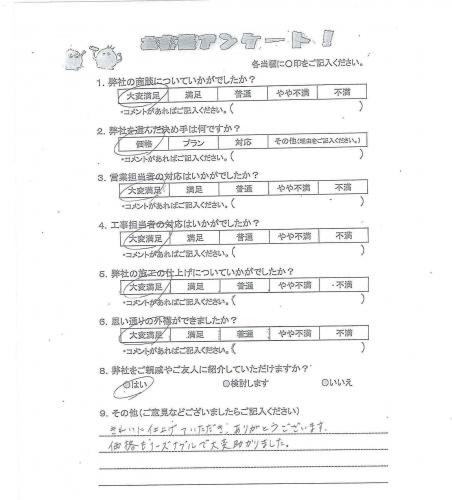 お客様アンケート!
各当欄に○印をご記入ください。
1. 弊社の商談についていかがでしたか?
大変満足 満足 普通 やや不満 不満
・コメントがあればご記入ください。(
2. 弊社を選んだ決め手は何ですか?
価格 プラン 対応 その他(理由をご記入ください。)
・コメントがあればご記入ください。(
3. 営業担当者の対応はいかがでしたか?
大変満足 満足 普通 やや不満 不満
・コメントがあればご記入ください。(
4. 工事担当者の対応はいかがでしたか?
大変満足 満足 普通 やや不満 不満
・コメントがあればご記入ください。(
5. 弊社の施工の仕上げについていかがでしたか?
大変満足 満足 普通 やや不満 不満
・コメントがあればご記入ください。(
6. 思い通りの外構ができましたか?
大変満足 満足 普通 やや不満 不満
・コメントがあればご記入ください。(
8. 弊社をご親戚やご友人に紹介していただけますか?
◎はい ◎検討します ◎いいえ
9. その他(ご意見などございましたらご記入ください)
きれいに仕上げていただき、ありがとうございます。
価格もリーズナブルで大変助かりました。